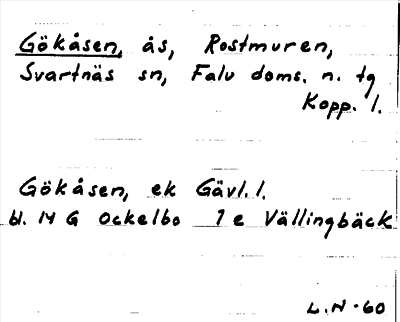 Gökåsen, ås, Rostmuren,
Svartnäs sn, Falu doms. n. tg
Kopp. l.
Gökåsen, ek Gävl. l.
bl. 14 G Ockelbo 1 e Vällingbäck
L.N-60